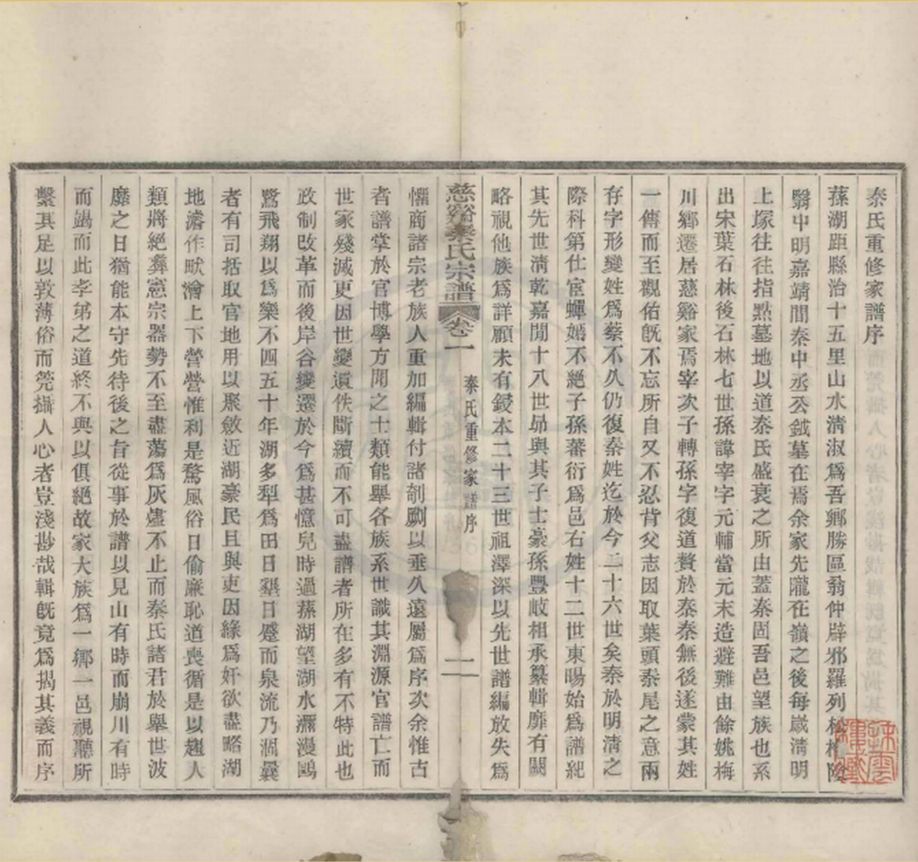 秦氏重修家譜序
蓀湖距縣治十五里山水清淑爲吾鄉勝區翁仲辟邪羅列松楸隂
翳中明嘉靖閒秦中丞公鉞墓在焉余家先隴在嶺之後每歲清明
上塚往往指點墓地以道秦氏盛衰之所由蓋秦固吾邑望族也系
出宋葉石林後石林七世孫諱宰字元輔當元末造避難由餘姚梅
川鄉遷居慈谿家焉宰次子轉孫字復道贅於秦秦無後遂蒙其姓
一傳而至觀佑旣不忘所自又不忍背父志因取葉頭秦尾之意兩
存字形變姓爲蔡不久仍復秦姓迄於今二十六世矣秦於明清之
際科第仕宦蟬嫣不絕子孫蕃衍爲邑右姓十二世東暘始爲譜紀
其先世清乾嘉閒十八世昴與其子士豪孫豐岐相承纂輯靡有闕
略視他族爲詳顧未有鋟本二十三世祖澤深以先世譜編放失爲
慈谿秦氏宗譜 卷一 秦氏重修家譜序 一
懼商諸宗老族人重加編輯付諸剞劂以垂久遠屬爲序次余惟古
者譜掌於官博學方聞之士類能舉各族系世識其淵源官譜亡而
世家殘滅更因世變遺佚斷續而不可盡譜者所在多有不特此也
政制改革而後岸谷變遷於今爲甚憶兒時過蓀湖望湖水瀰漫鷗
鷺飛翔以爲樂不四五十年湖多犁爲田日墾日蹙而泉流乃涸曩
者有司括取官地用以聚斂近湖豪民且與吏因緣爲奸欲盡略湖
地濬作畎澮上下營營惟利是騖風俗日偷廉恥道喪循是以趨人
類將絕彝憲宗器勢不至盡蕩爲灰燼不止而秦氏諸君於舉世波
靡之日猶能本守先待後之旨從事於譜以見山有時而崩川有時
而竭而此孝弟之道終不與以俱絕故家大族爲一鄉一邑視聽所
繫其足以敦薄俗而筦攝人心者豈淺尠哉輯旣竟爲揭其義而序